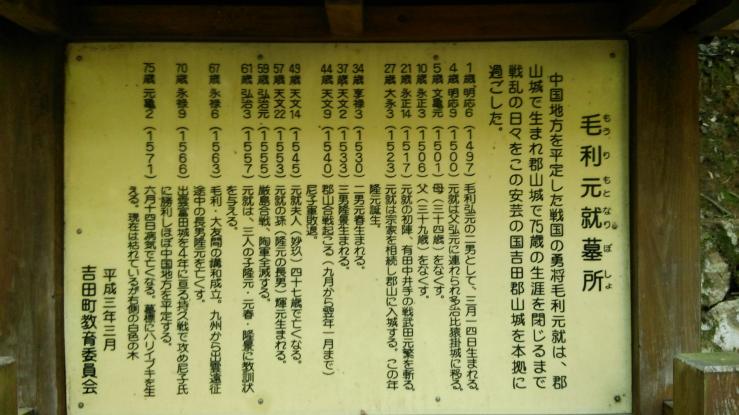 毛利元就墓所
もうりもとなりぼしょ
中国地方を平定した戦国の勇将毛利元就は、郡
山城で生まれ郡山城で75歳の生涯を閉じるまで
戦乱の日々をこの安芸の国吉田郡山城を本拠に
過ごした。
1歳 明応6(1497)毛利弘元の二男として、三月一四日生まれる。
4歳 明応9(1500)元就は父弘元に連れられ多治比猿掛城に移る。
5歳 文亀元(1501)母(三十四歳)をなくす。
10歳 永正3(1506)父(三十九歳)をなくす。
21歳 永正14(1517)元就の初陣、有田中井手の戦武田元繁を斬る。
27歳 大永3(1523)元就は宗家を相続し郡山に入城する。この年
隆元誕生。
34歳 享禄3(1530)二男元春生まれる。
37歳 天文2(1533)三男隆景生まれる。
44歳 天文9(1540)郡山合戦起こる(九月から翌年一月まで)
尼子軍敗退。
49歳 天文14(1545)元就夫人(妙玖)四十七歳で亡くなる。
57歳 天文22(1553)元就の孫(隆元の長男)輝元生まれる。
59歳 弘治元(1555)厳島合戦、陶軍全滅する。
61歳 弘治3(1557)元就は、三人の子隆元・元春・隆景に教訓状
を与える。
67歳 永禄6(1563)毛利・大友間の講和成立。九州から出雲遠征
途中の長男隆元を亡くす。
70歳 永禄9(1566)出雲富田城を4年に亘る持久戦で攻め尼子氏
に勝利しほぼ中国地方を平定する。
75歳 元亀2(1571)六月十四日病気で亡くなる。墓標にハリイブキを生
える。現在は枯れているが右側の白色の木
平成三年三月
吉田町教育委員会